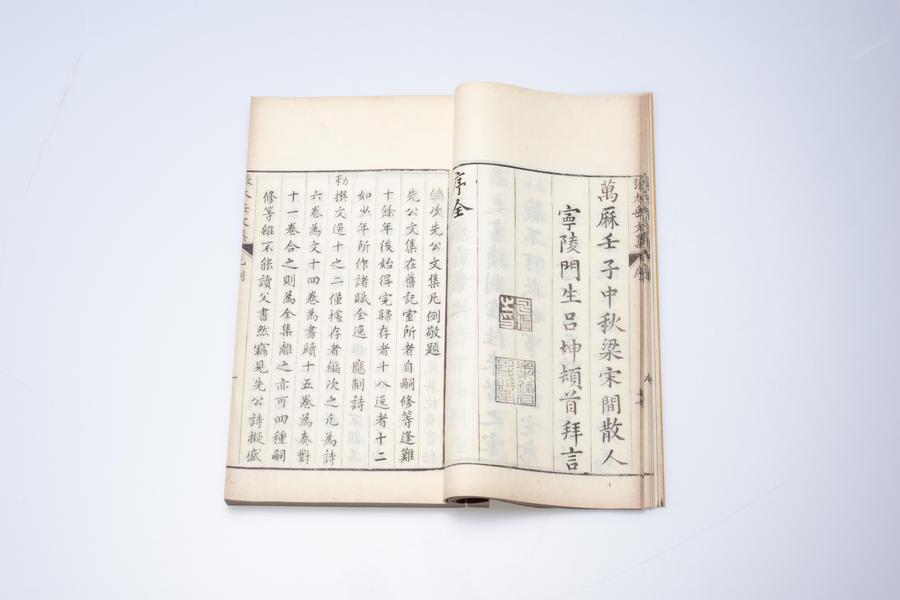 萬厤壬子中秋梁宋間散人
寧陵門生呂坤頓首拜言
序全
編次先公文集凡例敬題
先公文集在舊記室所者自嗣修等逢難
十餘年後始得完歸存者十八逸者十二
如少年所作諸賦全逸應制詩
勑撰文逸十之二僅據存者編次之凡為詩
六卷為文十四卷為書牘十五卷為奏對
十一卷合之則為全集離之亦可四種嗣
修等雖不能讀父書然竊見先公詩擬盛